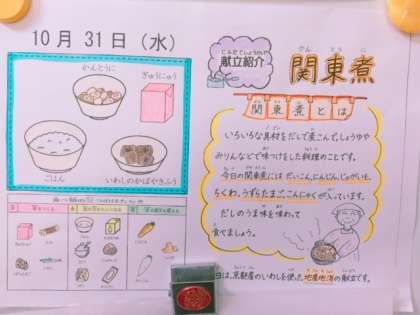 10月31日（水）
かんとうに
ぎゅうにゅう
ごはん
いわしのかばやきふう
こんだてしょうかい
献立紹介
かんとうに
関東煮
関東煮とは
いろいろな具材をだしで煮こんで、しょうゆや
みりんなどで味つけをした料理のことです。
今日の関東煮には だいこん、にんじん、じゃがいも、
ちくわ、うずらたまご、こんにゃくが入っています。
だしのうま味を味わって
食べましょう。
日は、京都産のいわしを使った 地産地消の献立です。